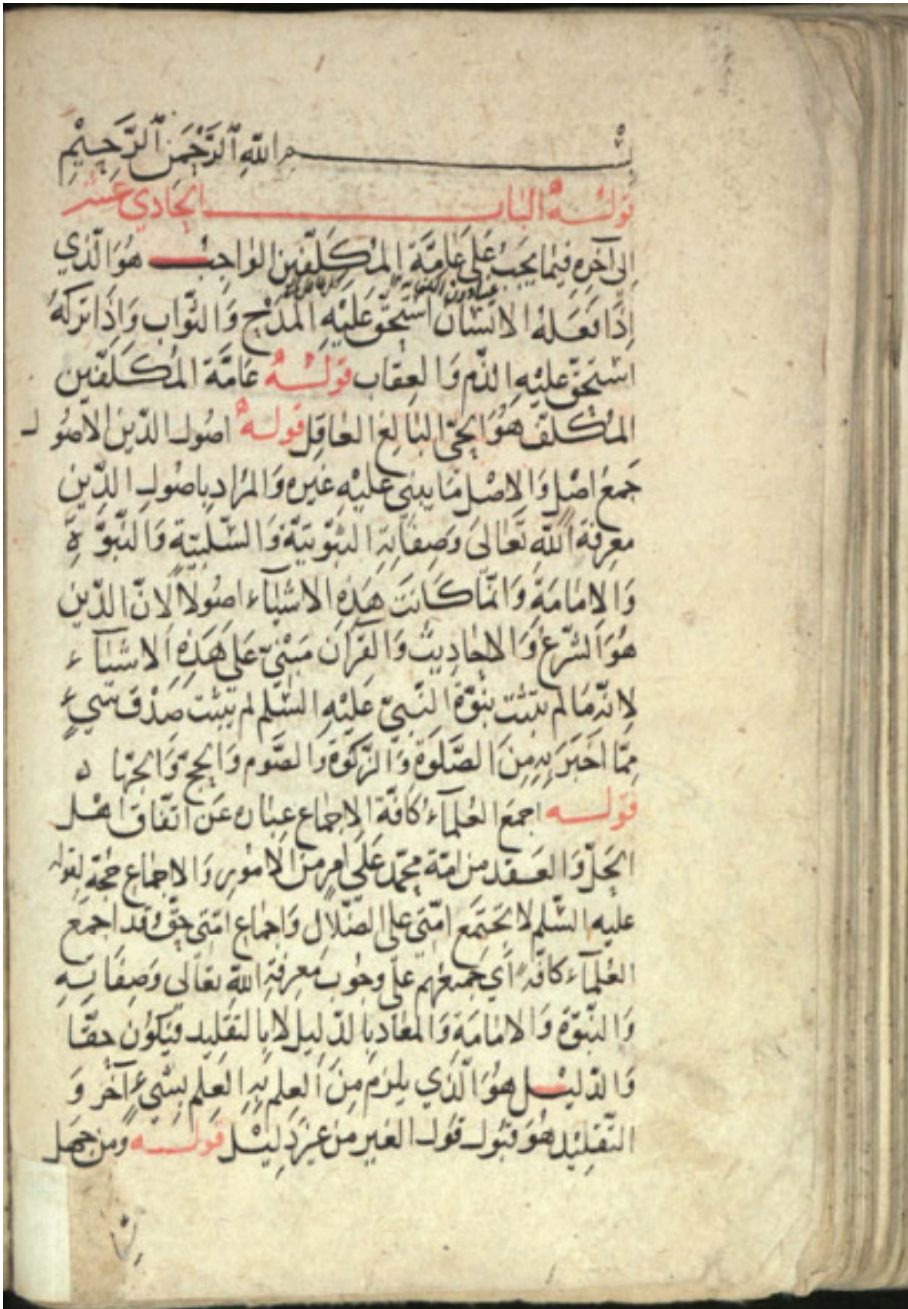 بسم الله الرحمن الرحيم
قوله الباب الحادي عشر
الى آخره فيما يجب على عامة المكلفين الواجب هو الذي
اذا فعله الانسان استحق عليه المدح والثواب واذا تركه
استحق عليه الذم والعقاب قوله عامة المكلفين
المكلف هو الحي البالغ العاقل قوله اصول الدين الاصول
جمع اصل والاصل ما يبنى عليه غيره والمراد باصول الدين
معرفة الله تعالى وصفاته الثبوتية والسلبية والنبوة
والامامة وانما كانت هذه الاشياء اصولا لان الدين
هو الشرع والاحاديث والقرآن مبني على هذه الاشياء
لانه ما لم يثبت نبوة النبي عليه السلم لم يثبت صدق شيء
مما اخبر به من الصلوة والزكوة والصوم والحج والجهاد
قوله اجمع العلماء كافة الاجماع عبارة عن اتفاق اهل
الحل والعقد من امة محمد على امر من الامور والاجماع حجة لقوله
عليه السلم لا تجتمع امتي على الضلال واجماع امتي حق وقد اجمع
العلماء كافة اي جميعهم على وجوب معرفة الله تعالى وصفاته
والنبوة والامامة والمعاد بالدليل لا بالتقليد فيكون حقا
والدليل هو الذي يلزم من العلم به العلم بشيء آخر و
التقليد هو قبول قول الغير من غير دليل قوله ومن جهل